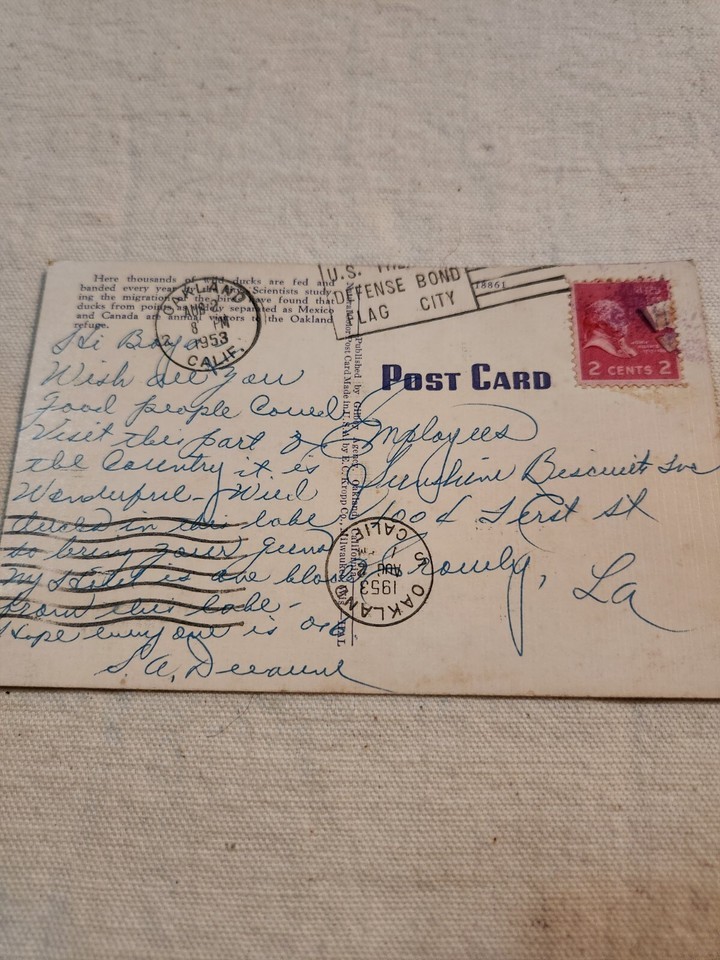 Here thousands of wild ducks are fed and
banded every year. Scientists study-
ing the migration of the birds have found that
ducks from points as widely separated as Mexico
and Canada are annual visitors to the Oakland
refuge.
OAKLAND
AUG
8 PM
1953
CALIF.
U.S.
DEFENSE BOND
FLAG CITY
18861
2 CENTS 2
POST CARD
Hi Boys
Wish all you
Good people Coued
Visit this part of
the Country it is
Wonderful - Wild
ducks in this lake
to bring your guns
My Hotel is one block
from this lake -
Hope every one is
S. A.
Employees
Sunshine Biscuit Inc
First St
La
Published by Agency, Oakland, California
Post Card Made in U.S.A. by E. C. Kropp Co., Milwaukee, Wis.
OAKLAND
AUG
1953
CALIF